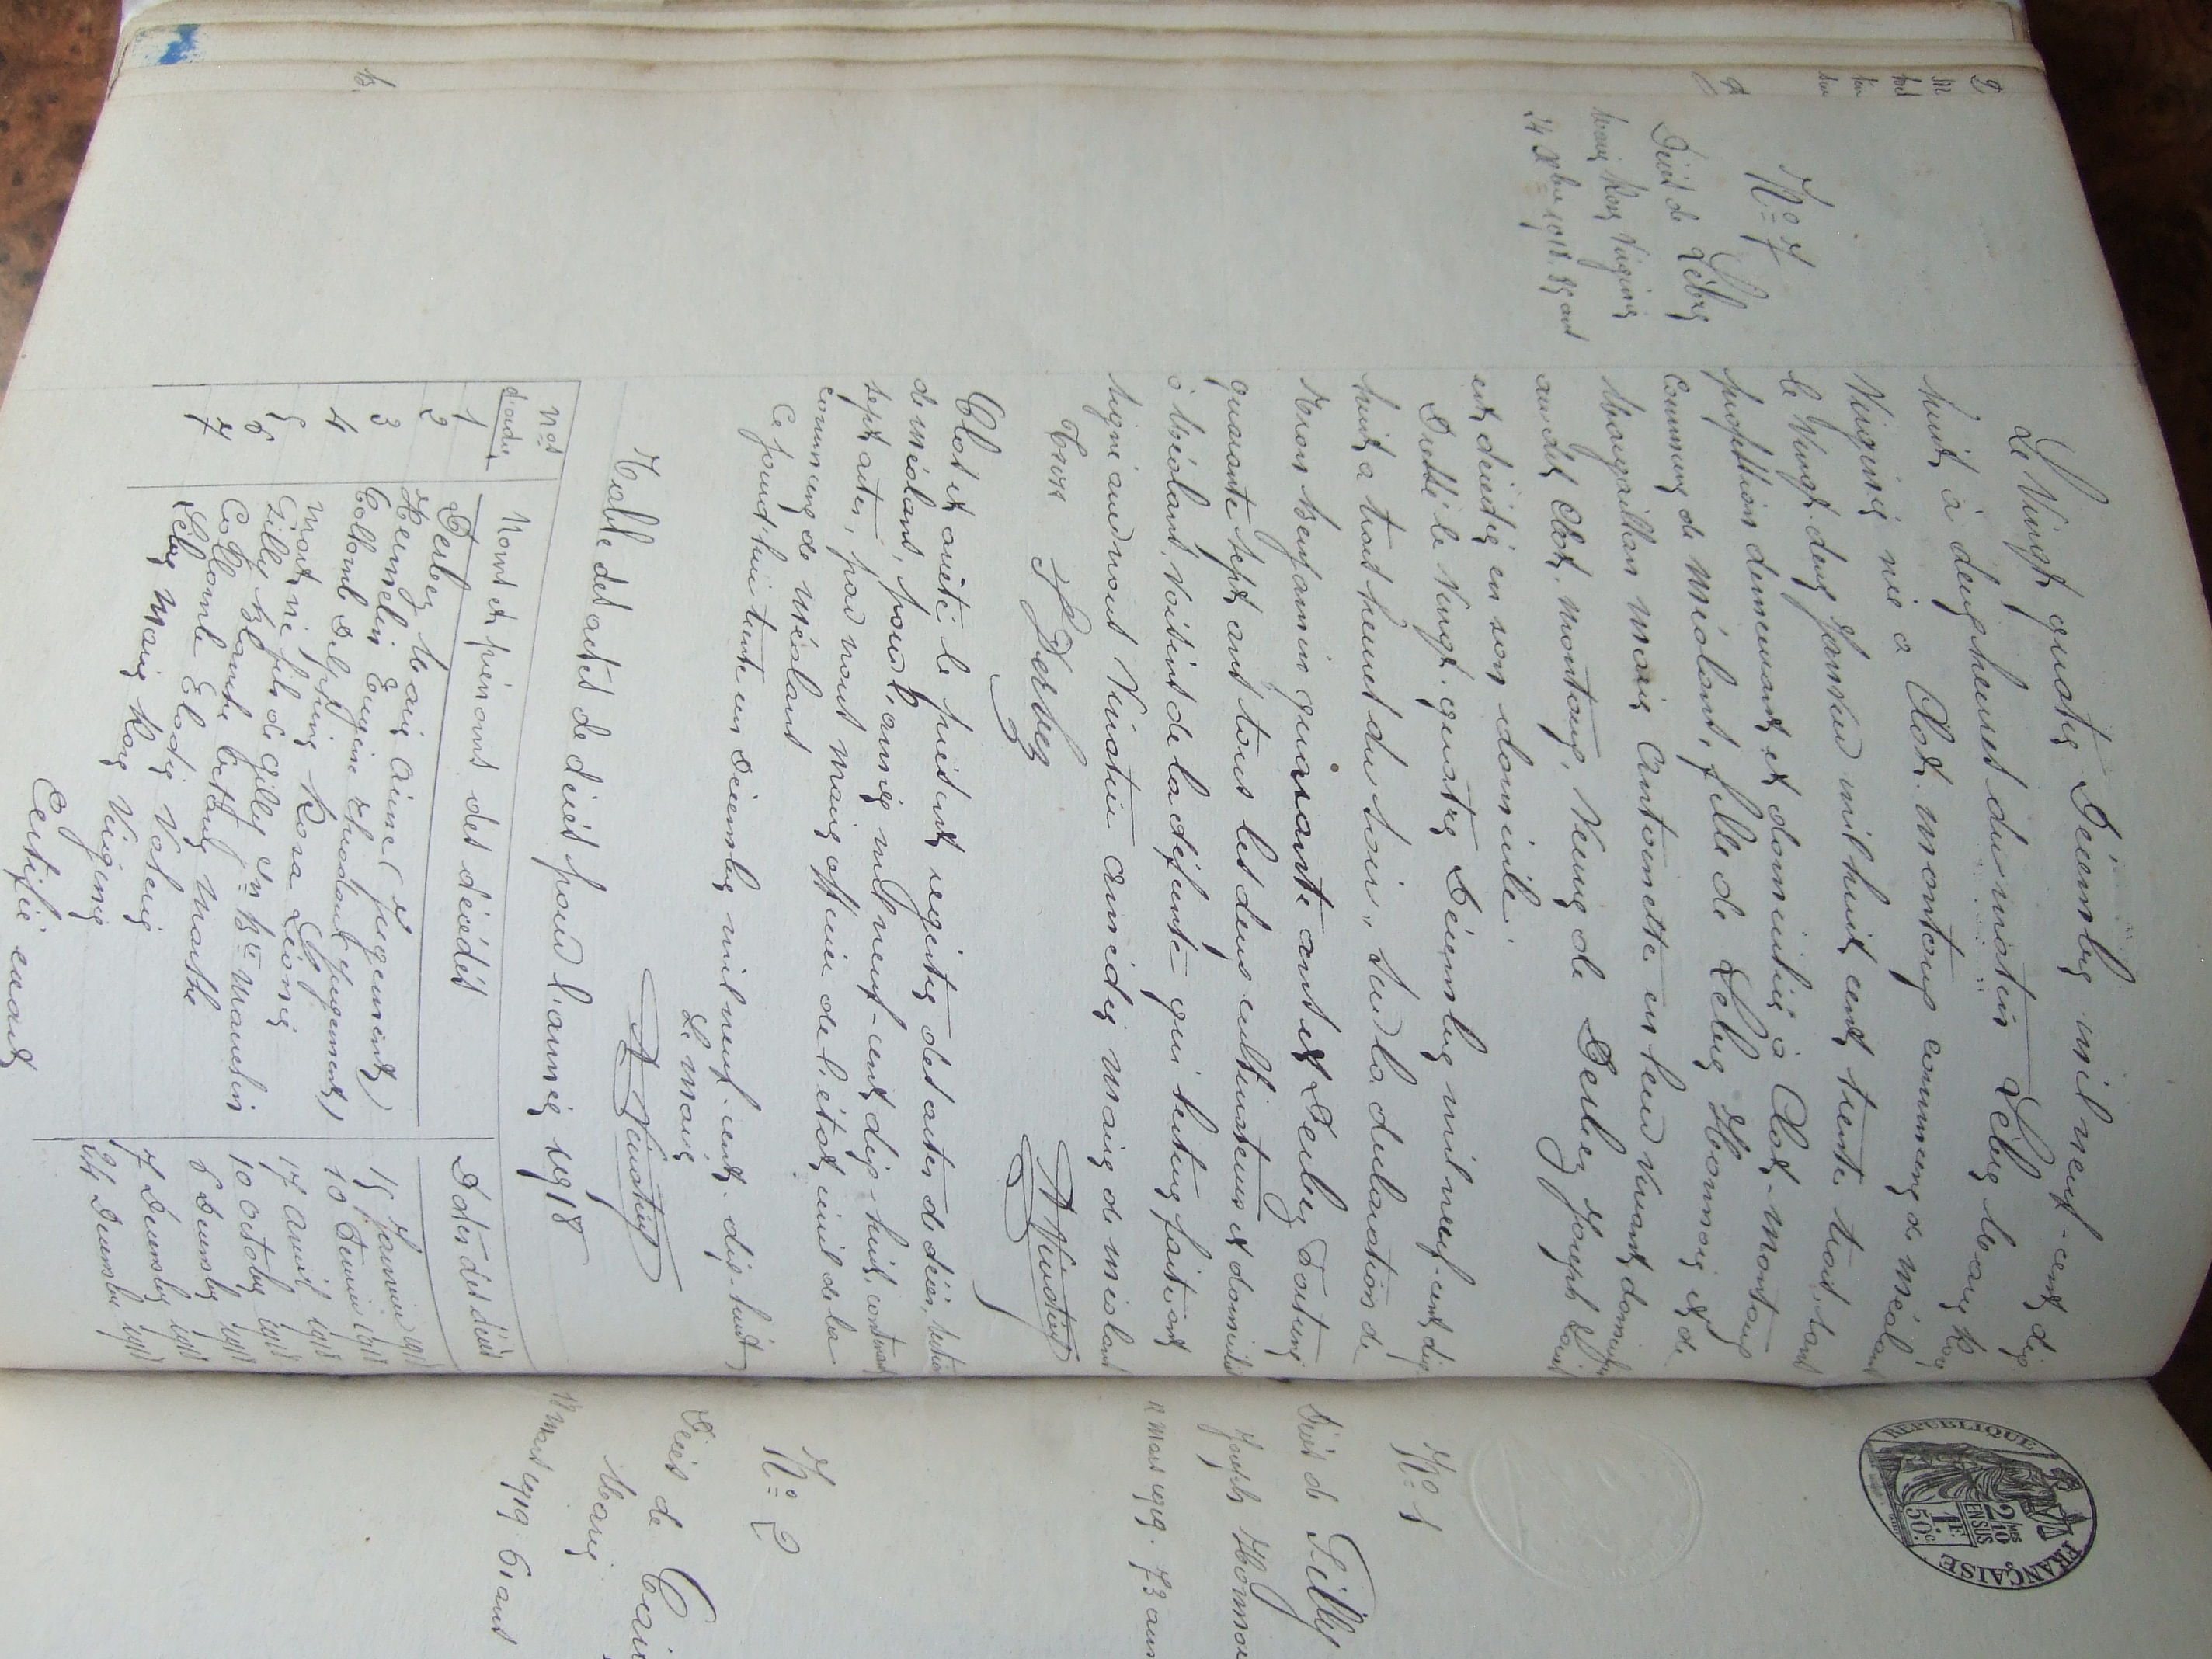 N° 7
Décès de Lèbre
Marie Rose Virginie
24 Xbre 1918. 85 ans
Le Vingt quatre Décembre mil neuf-cent dix
huit à deux heures du matin Lèbre Marie Rose
Virginie née à Clot. montoux commune de Méolans
le Vingt deux Janvier mil huit cent trente trois, sans
profession demeurant et domiciliée à Clot-montoux
commune de Méolans, fille de Lèbre Honoré et de
Margaillan Marie Antoinette en leur vivant domiciliés
au dit Clot. montoux, Veuve de Derbez Joseph
est décédée en son domicile
Dressé le Vingt-quatre Décembre mil neuf-cent dix
huit a trois heures du soir, sur la déclaration de
Benjamin quarante ans et Derbez Fortuné
quarante sept ans tous les deux cultivateurs et domiciliés
à Méolans, Voisins de la défunte qui lecture faite ont
signé avec nous Maire de Méolans
F Derbez
Clos et arrêté le présent registre des actes de décès,
de Méolans, pour l'année mil neuf-cent dix-huit, contenant
sept actes, par nous maire officier de l'état civil de la
commune de Méolans
Ce jourd'hui trente un Décembre mil neuf-cent-dix-huit
Le Maire
Table des actes de décès pour l'année 1918
Nos d'ordre Noms et prénoms des décédés Dates des décès
1 Derbez Marie Aimé (jugement) 15 Janvier 1918
2 Hermelin Eugène Théodore (jugement) 10 Février 1918
3 Collomb Delphine Rosa Léonie 17 Avril 1918
4 Mort né fils de Gilly 10 Octobre 1918
5 Gilly Blanche Berthe Marthe 6 Décembre 1918
6 Collomb Elodie Valerie 7 Décembre 1918
7 Lèbre Marie Rose Virginie 24 Décembre 1918
Certifié exact
REPUBLIQUE FRANÇAISE
2/10 MES
EN SUS
1 F.
50 c.
N° 1
Décès de Gilly
Joseph
11 Mars 1919. 73 ans
N° 2
Décès de
Marie
18 Mars 1919 61 ans